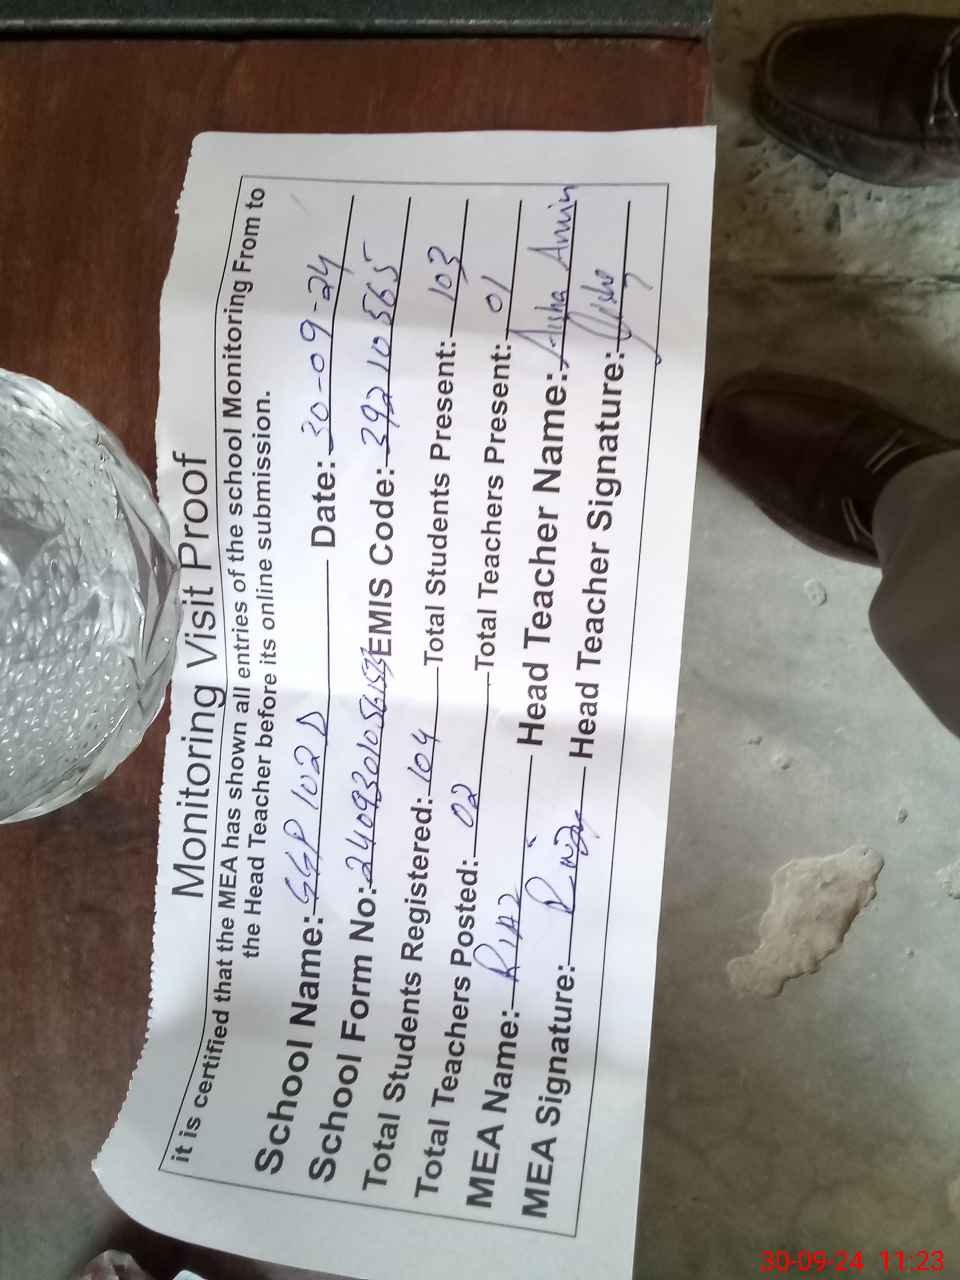 Monitoring Visit Proof
it is certified that the MEA has shown all entries of the school Monitoring From to
the Head Teacher before its online submission.
School Name: GGP 102 D Date: 30-09-24
School Form No: EMIS Code: 39210565
Total Students Registered: 104 Total Students Present: 103
Total Teachers Posted: 02 Total Teachers Present: 01
MEA Name: RIAZ Head Teacher Name: Aisha Amin
MEA Signature: Head Teacher Signature:
30-09-24 11:23